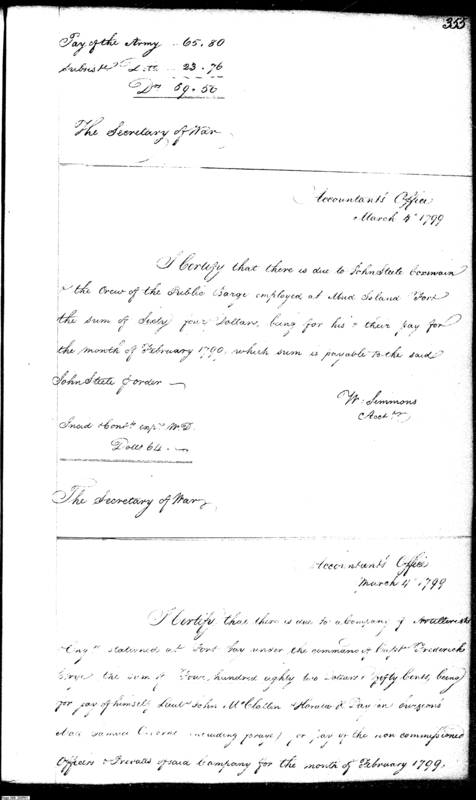 355
Pay of the Army .. 65.80
Subsist 23.76
Drs 89.56
The Secretary of War
Accountant's Office
March 4th 1799
I Certify that there is due to John Steele Coxswain
& the Crew of the Public Barge employed at Mud Island Fort
the sum of Sixty four Dollars, being for his & their pay for
the month of February 1799, which sum is payable to the said
John Steele or order
W. Simmons
Acctt
Incid & Contt exps W.D.
Dolls 64.
The Secretary of War
Accountant's Office
March 4th 1799
I Certify that there is due to a Company of Artillerists
& Engrs stationed at Fort Jay under the command of Capt Frederick
the sum of Four hundred eighty two Dollars & fifty Cents, being
for pay of himself, Lieuts John McClallen & Horatio Dayton Surgeon's
Mate Samuel Osborne including forage, for pay of the non commissioned
Officers & Privates of said Company for the month of February 1799.